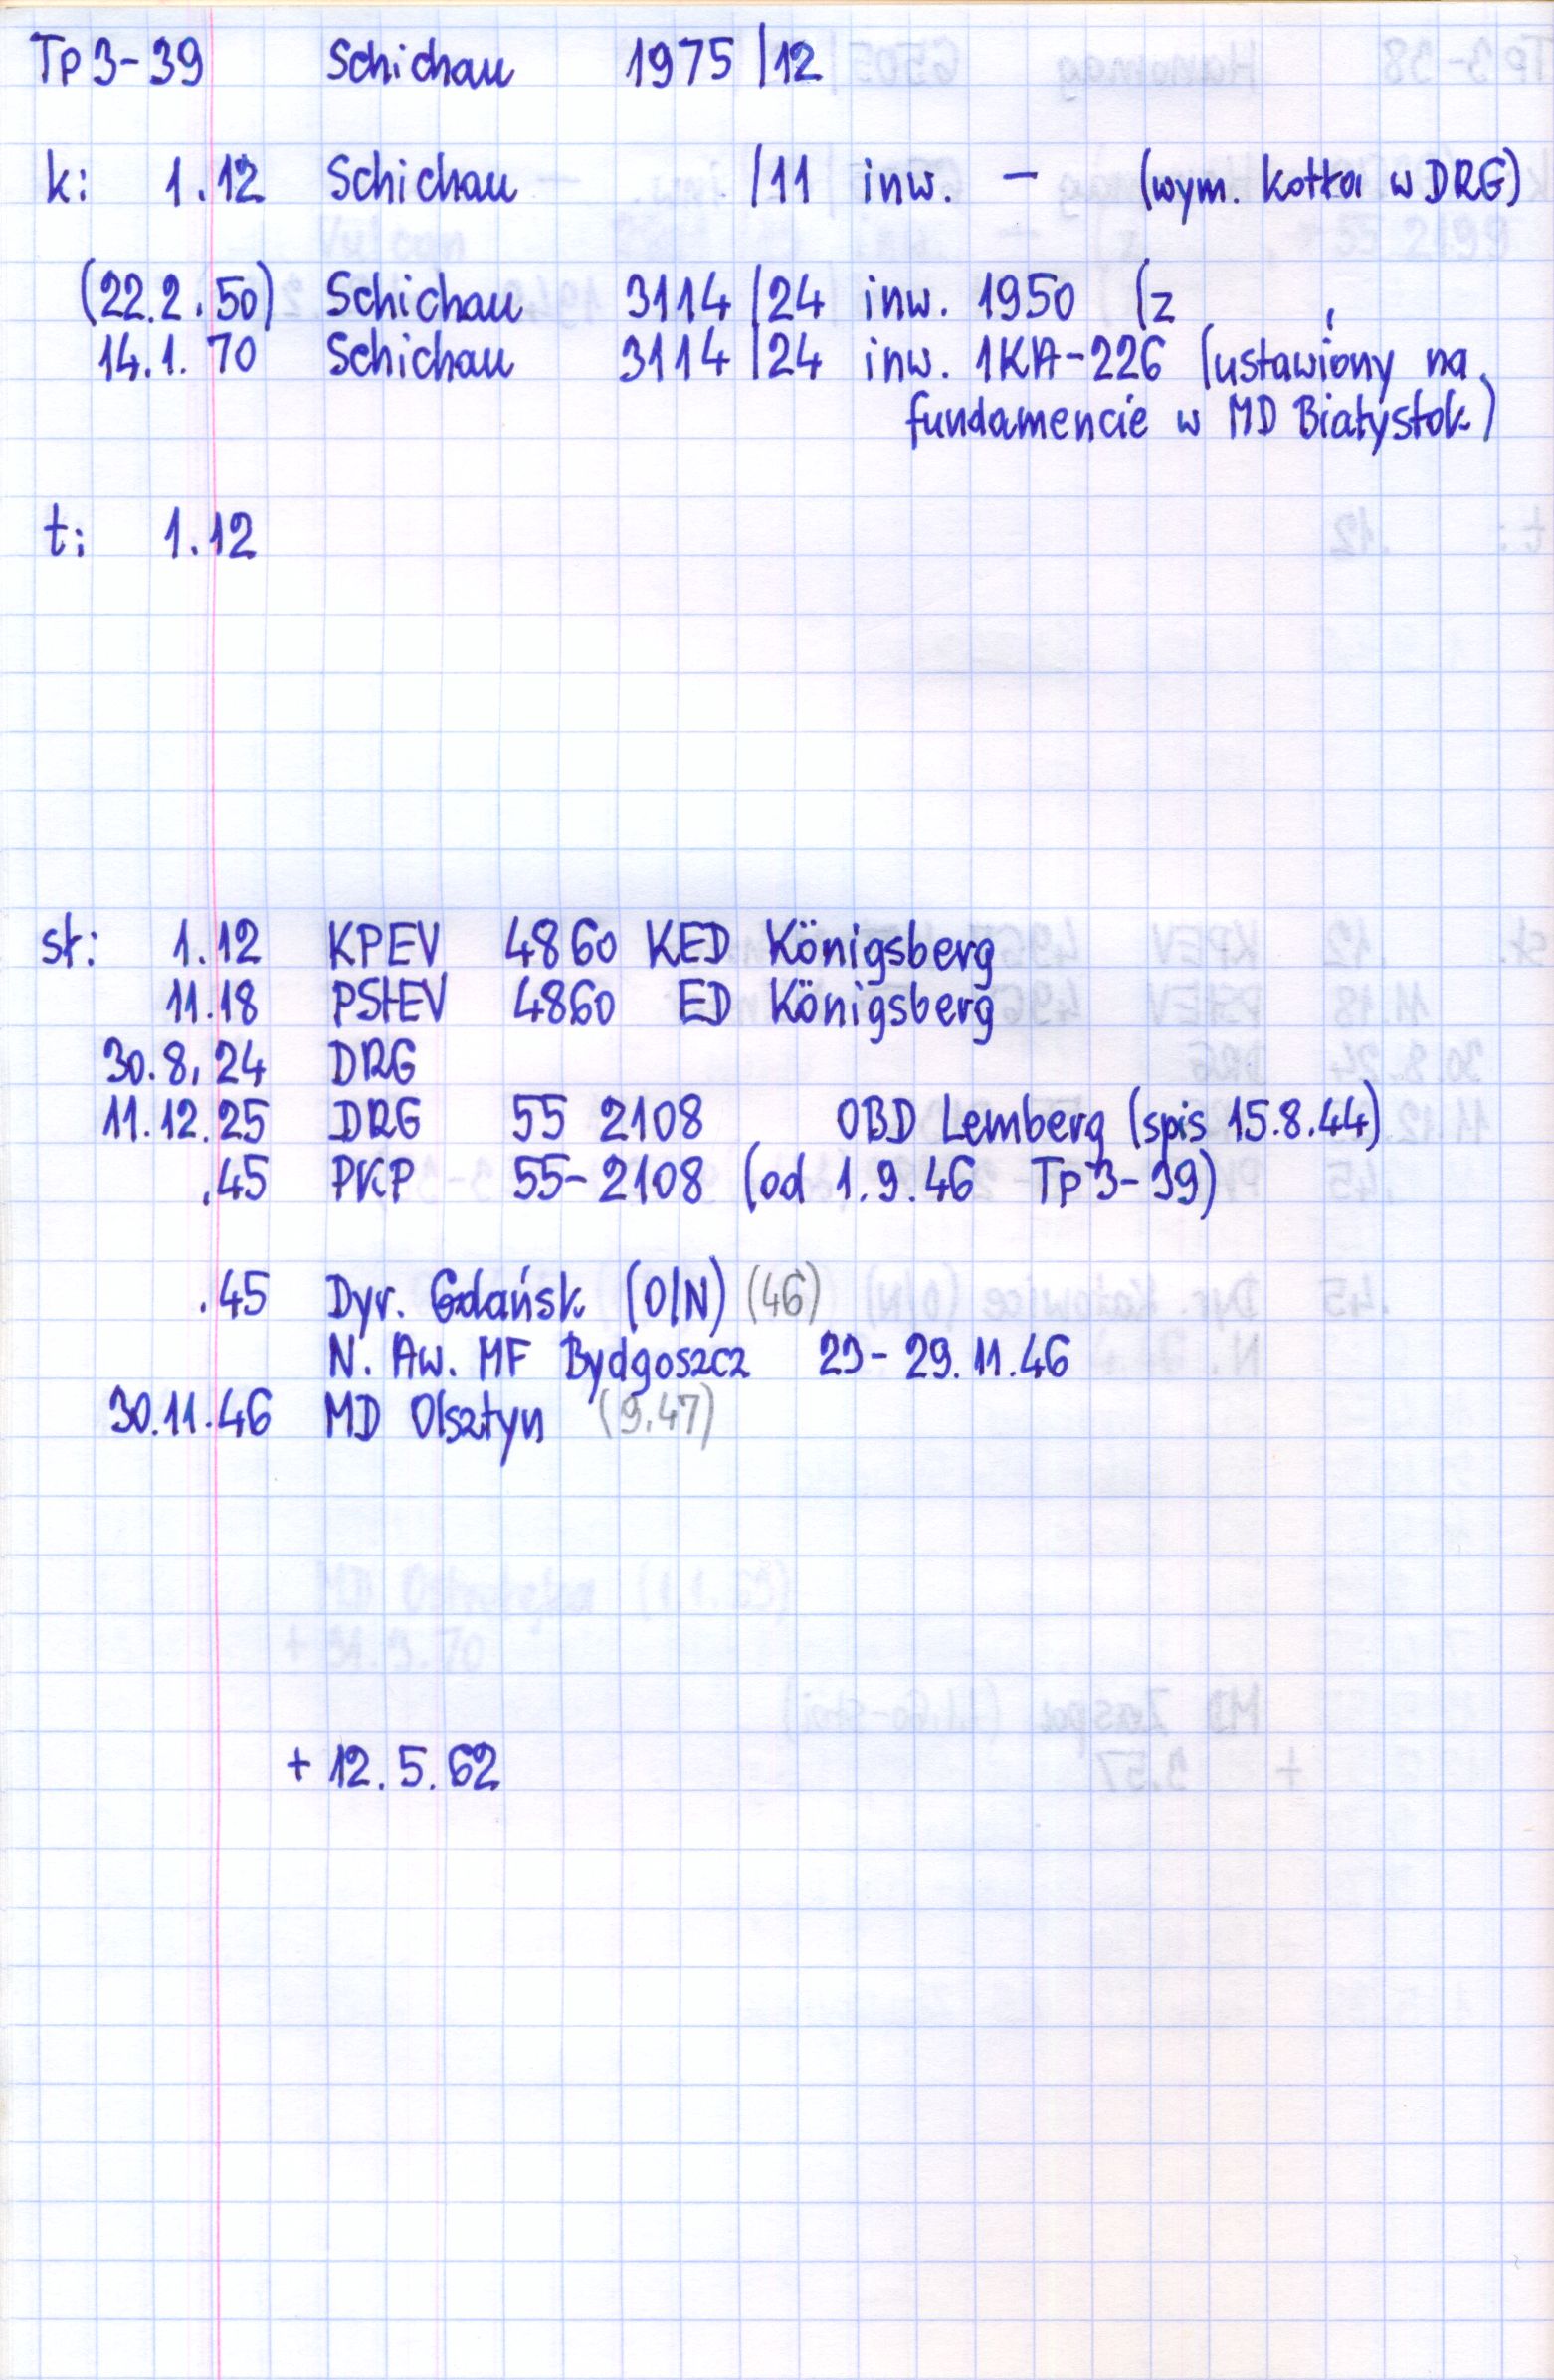 Tp3-39 Schichau 1975/12
k: 1.12 Schichau /11 inw. - (wym. kotła w DRG)
(22.2.50) Schichau 3114/24 inw. 1950 (z ,
14.1.70 Schichau 3114/24 inw. 1KA-226 (ustawiony na
fundamencie w MD Białystok)
t: 1.12
st: 1.12 KPEV 4860 KED Königsberg
11.18 PStEV 4860 ED Königsberg
30.8.24 DRG
11.12.25 DRG 55 2108 OBD Lemberg (spis 15.8.44)
.45 PKP 55-2108 (od 1.9.46 Tp3-39)
.45 Dyr. Gdańsk (O/N) (46)
N. Aw. MF Bydgoszcz 23-29.11.46
30.11.46 MD Olsztyn (9.47)
+ 12.5.62